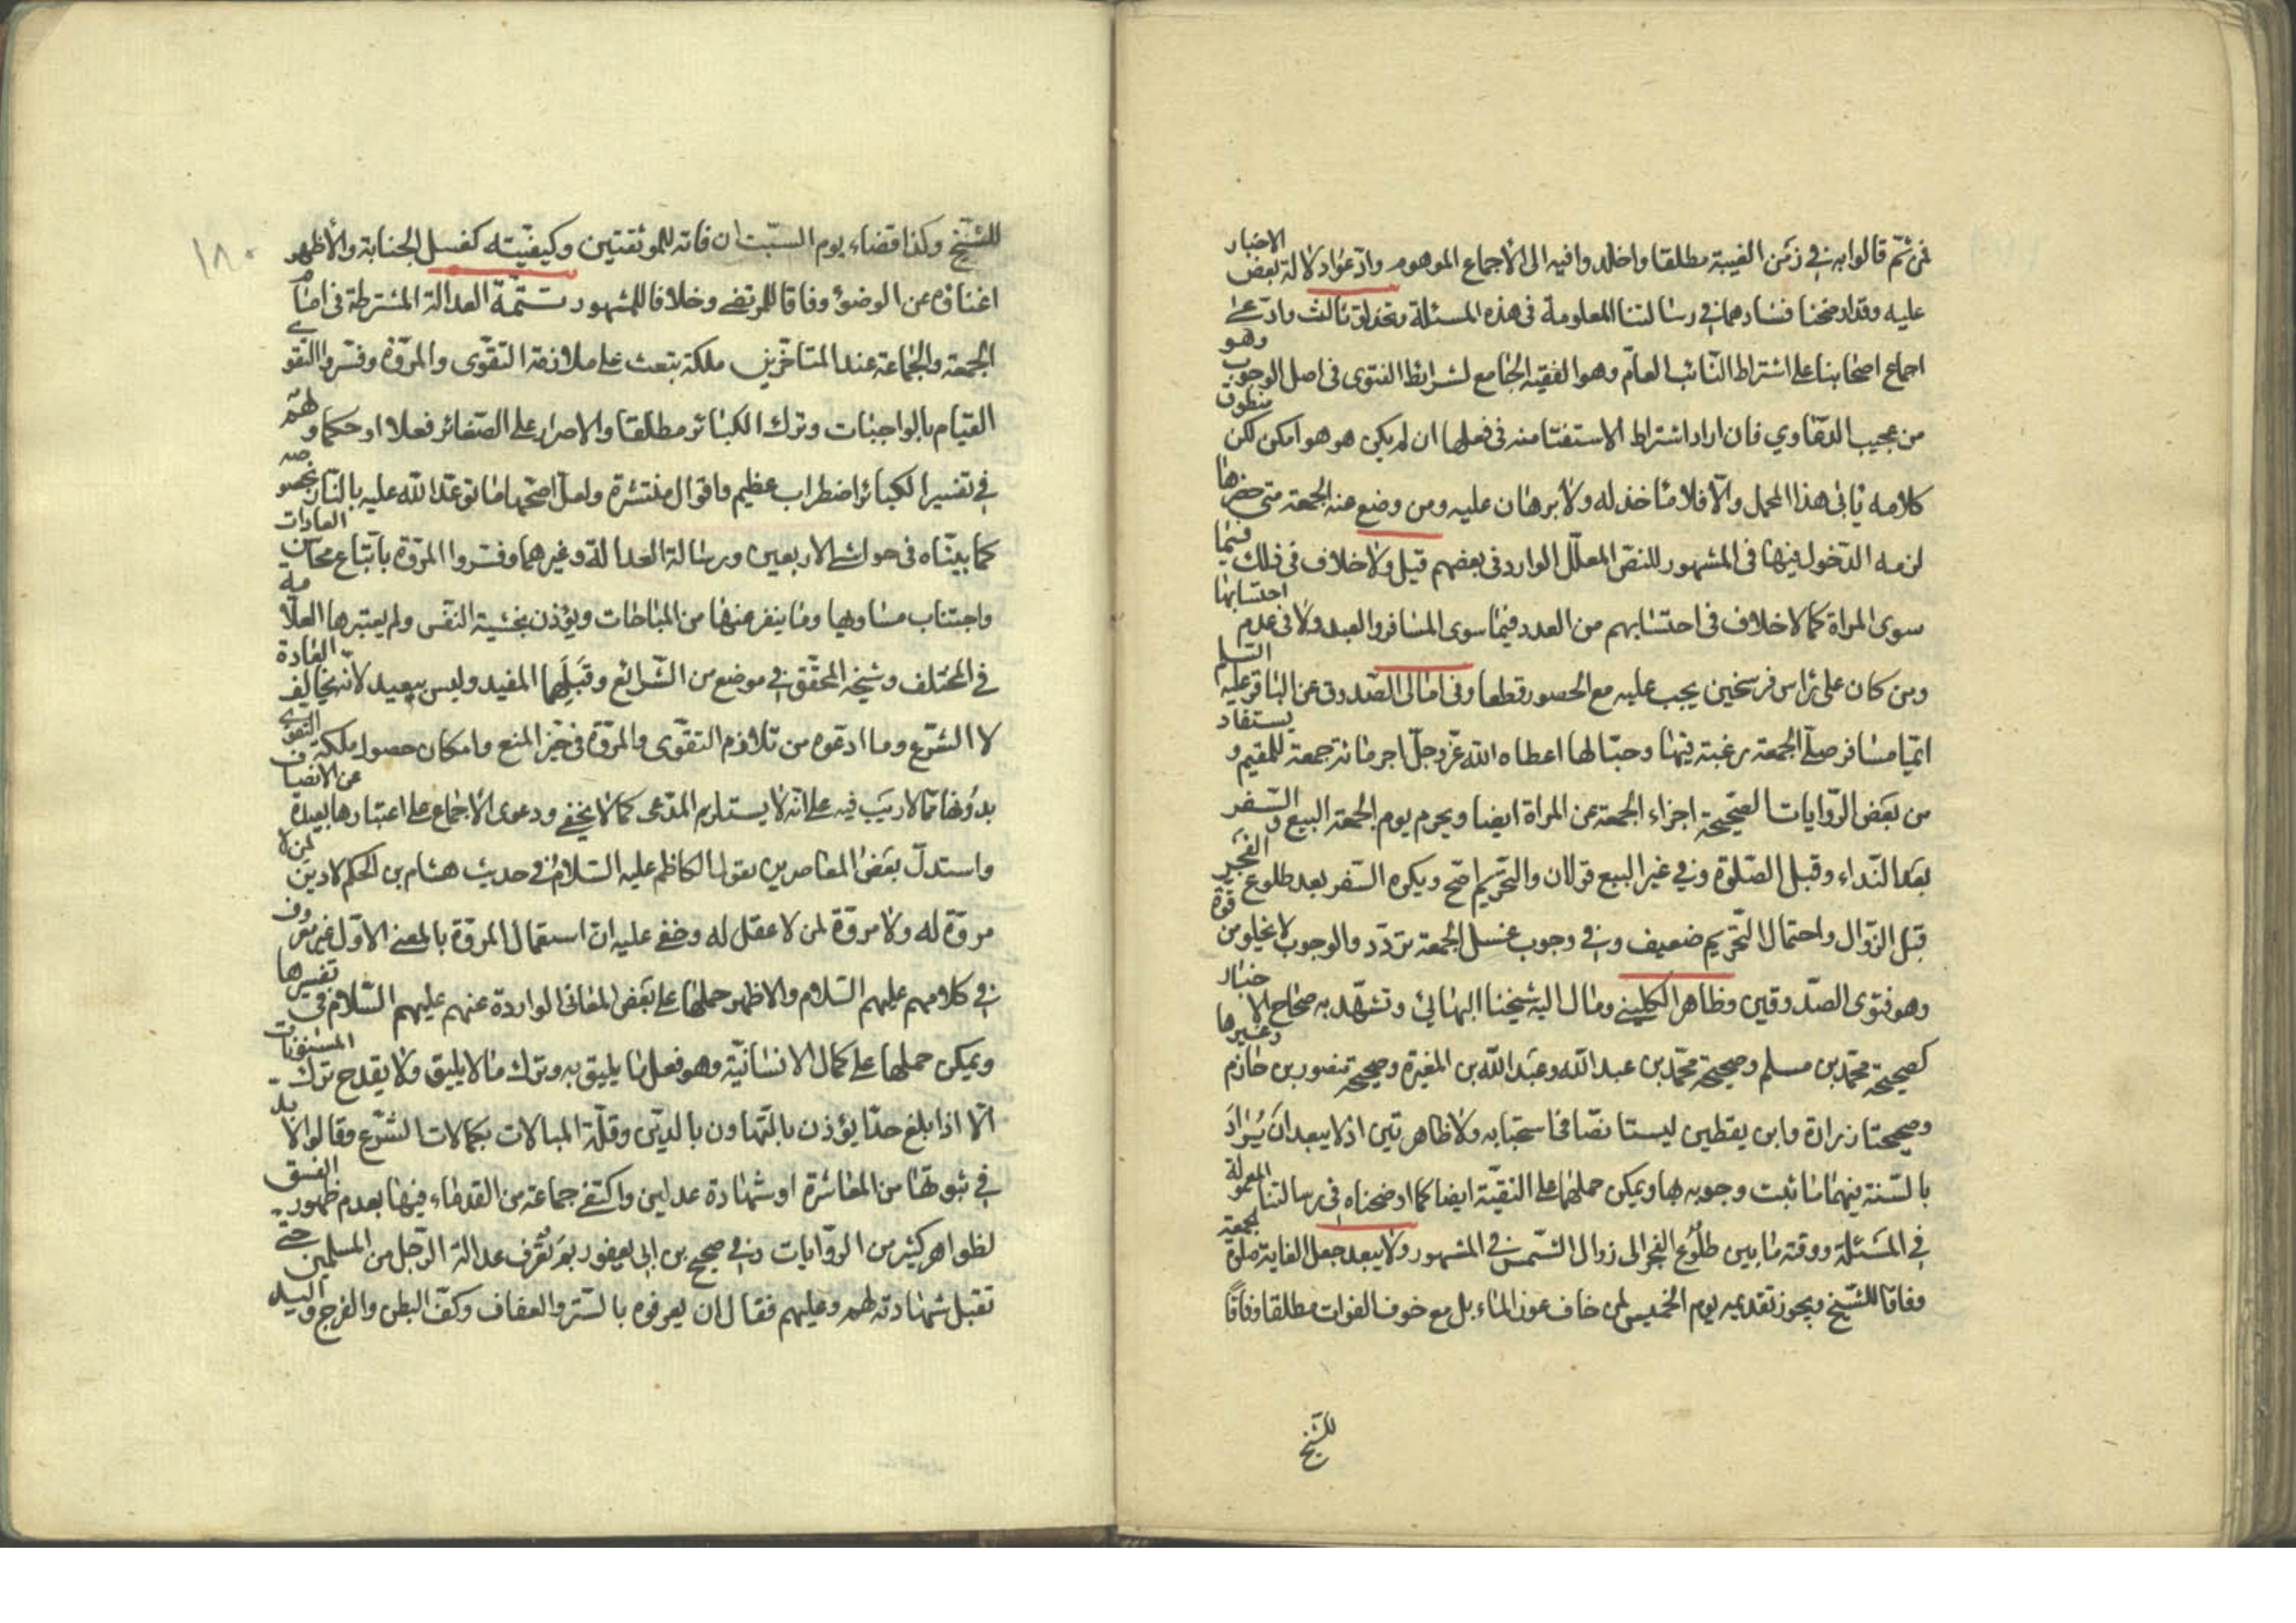 فمن ثم قالوا به في زمن الغيبة مطلقا واخلدوا فيه الى الأجماع الموهوم وادّعوا دلالة بعض الاخبار
عليه وقد اوضحنا فسادهما في رسالتنا المعلومة فى هذه المسئلة وتحذلق ثالث وادعى
اجماع اصحابنا على اشتراط النّائب العام وهو الفقيه الجامع لشرائط الفتوى فى اصل الوجوب وهو
من عجيب الدعاوي فان اراد اشتراط الاستفتا منه فى فعلها ان لم يكن هو هو امكن لكن منطوق
كلامه يأبى هذا المحمل والّا فلا مأخذ له ولا برهان عليه ومن وضع عنه الجمعة متى حضرها
لزمه الدّخول فيها فى المشهور للنص المعلّل الوارد فى بعضهم قيل ولا خلاف فى ذلك فيما
سوى المراة كما لا خلاف فى احتسابهم من العدد فيما سوى المسافر والعبد ولا فى عدم احتسابها
ومن كان على رأس فرسخين يجب عليه مع الحصور قطعا وفى امالى الصّدوق عن الباقر عليه السلم
ايّما مسافر صلّى الجمعة رغبة فيها وحبّا لها اعطاه الله عزّ وجلّ اجر مائة جمعة للمقيم و يستفاد
من بعض الرّوايات الصّحيحة اجزاء الجمعة عن المراة ايضا ويحرم يوم الجمعة البيع و السّفر
بعد النّداء وقبل الصّلوة وفي غير البيع قولان والتّحريم اصحّ ويكره السّفر بعد طلوع الفجر
قبل الزّوال واحتمال التّحريم ضعيف وفي وجوب غسل الجمعة تردّد والوجوب لا يخلو من قوّة
وهو فتوى الصدوقين وظاهر الكليني ومال اليه شيخنا البهائي وتشهد به صحاح الاخبار
كصحيحة محمّد بن مسلم وصحيحة محمّد بن عبد الله وعبد الله بن المغيرة وصحيحة منصور بن حازم وغيرها
وصحيحتا زرارة وابن يقطين ليستا نصّا فى استحبابه ولا ظاهرتين اذ لا يبعد ان يُراد
بالسّنة فيهما ما ثبت وجوبه بها ويمكن حملها على التقيّة ايضا كما اوضحناه فى رسالتنا المعمولة
في المسئلة ووقته ما بين طلوع الفجر الى زوال الشّمس في المشهور ولا يبعد جعل الغاية صلوة الجمعة
وفاقا للشّيخ ويجوز تقديمه يوم الخميس لمن خاف عوز الماء بل مع خوف الفوات مطلقا وفاقا
للشيخ
١٨٠
للشّيخ وكذا قضاءه يوم السّبت ان فاته للموثقتين وكيفيّته كغسل الجنابة والأظهر
اغناؤه عن الوضوء وفاقا للمرتضى وخلافا للمشهور تتمّة العدالة المشترطة فى امام
الجمعة والجماعة عند المتاخّرين ملكة تبعث على ملازمة التقوى والمروّة وفسّروا التقوى
القيام بالواجبات وترك الكبائر مطلقا والاصرار على الصّغائر فعلا او حكما و لهم
في تفسير الكبائر اضطراب عظيم واقوال منتشرة ولعلّ اصحّها ما توعّد الله عليه بالنّار بخصوصه
كما بينّاه فى حواشى الاربعين ورسالة العدالة وغيرهما وفسّروا المروّة باتّباع محاسن العادات
واجتناب مساويها وما ينفر عنها من المباحات ويؤذن بخسّية النفس ولم يعتبرها العلّامه
في المختلف وشيخه المحقّق في موضع من الشّرائع وقبلهما المفيد وليس ببعيد لأنه يخالف العادة
لا الشّرع وما ادعوه من تلازم التقوى والمروّة فى حيّز المنع وامكان حصول ملكة التقوى
بدونها ممّا لا ريب فيه على انّه لا يستلزم المدّعى كما لا يخفى ودعوى الاجماع على اعتبارها بعيدة عن الانصاف
واستدلّ بعض المعاصرين بقول الكاظم عليه السّلام في حديث هشام بن الحكم لا دين لمن لا
مروّة له ولا مروّة لمن لا عقل له وخفى عليه انّ استعمال المروّة بالمعنى الاوّل غير معروف
في كلامهم عليهم السّلام والاظهر حملها على بعض المعانى الواردة عنهم عليهم السّلام فى تفسيرها
ويمكن حملها على كمال الانسانيّة وهو فعل ما يليق به وترك ما لا يليق ولا يقدح ترك المسنونات
الّا اذا بلغ حدّا يؤذن بالتّهاون بالدين وقلّة المبالات بكمالات الشّرع وقالوا لا بدّ
في ثبوتها من المعاشرة او شهادة عدلين واكتفى جماعة من القدماء فيها بعدم ظهور الفسق
لظواهر كثير من الرّوايات وفي صحيح بن ابى يعفور بم تعرف عدالة الرّجل من المسلمين حتّى
تقبل شهادته لهم وعليهم فقال ان يعرفوه بالسّتر والعفاف وكفّ البطن والفرج و اليد